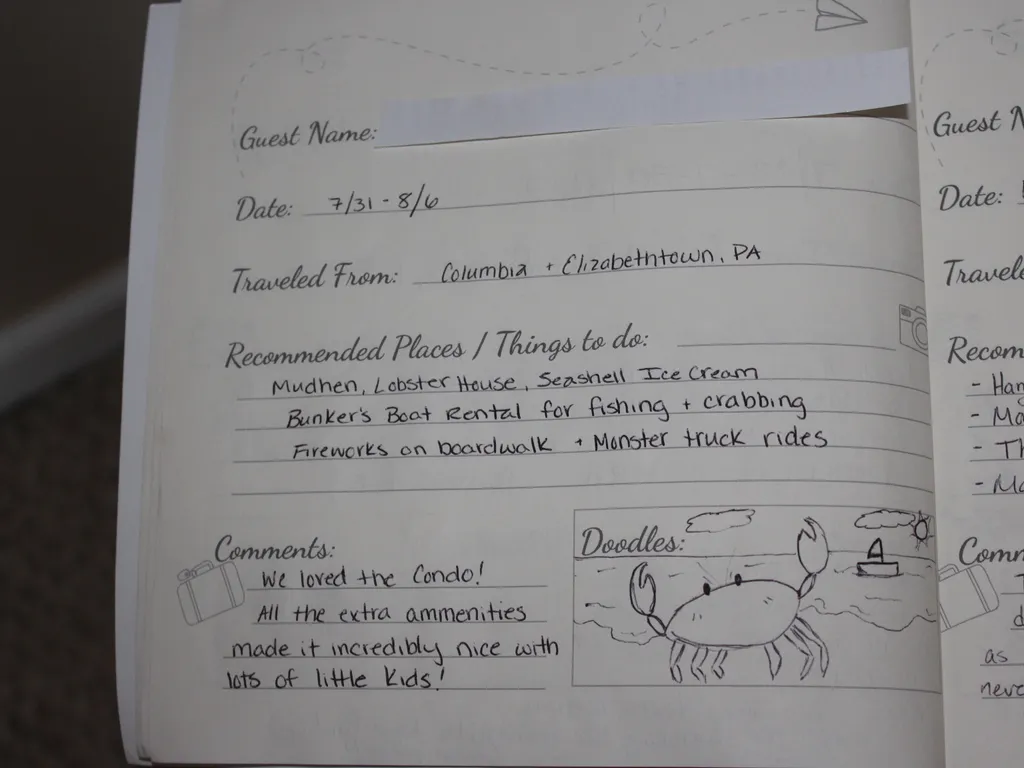 Guest Name:
Date: 7/31 - 8/6
Traveled From: Columbia + Elizabethtown, PA
Recommended Places / Things to do:
Mudhen, Lobster House, Seashell Ice Cream
Bunker's Boat Rental for fishing + crabbing
Fireworks on boardwalk + Monster truck rides
Comments:
We loved the Condo!
All the extra ammenities
made it incredibly nice with
lots of little kids!
Doodles:
Guest
Date:
as